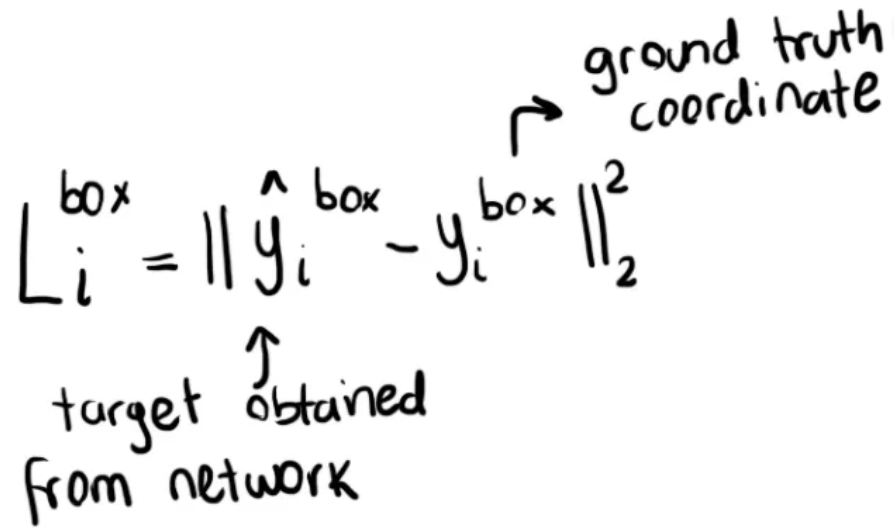 ground truth
coordinate
L_i^box = ||ŷ_i^box - y_i^box||_2^2
target obtained
from network